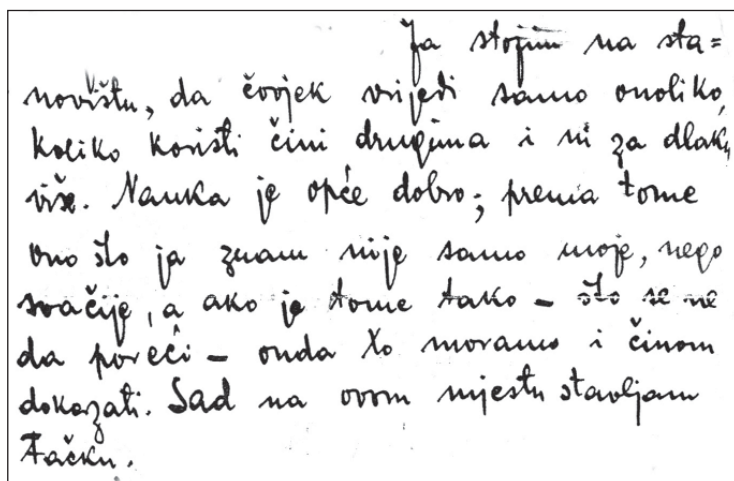 Ja stojim na sta=
novištu, da čovjek vrijedi samo onoliko,
koliko koristi čini drugima i ni za dlaku
više. Nauka je opće dobro; prema tome
ono što ja znam nije samo moje, nego
svačije, a ako je tome tako – što se ne
da poreći – onda to moramo i činom
dokazati. Sad na ovom mjestu stavljam
tačku.